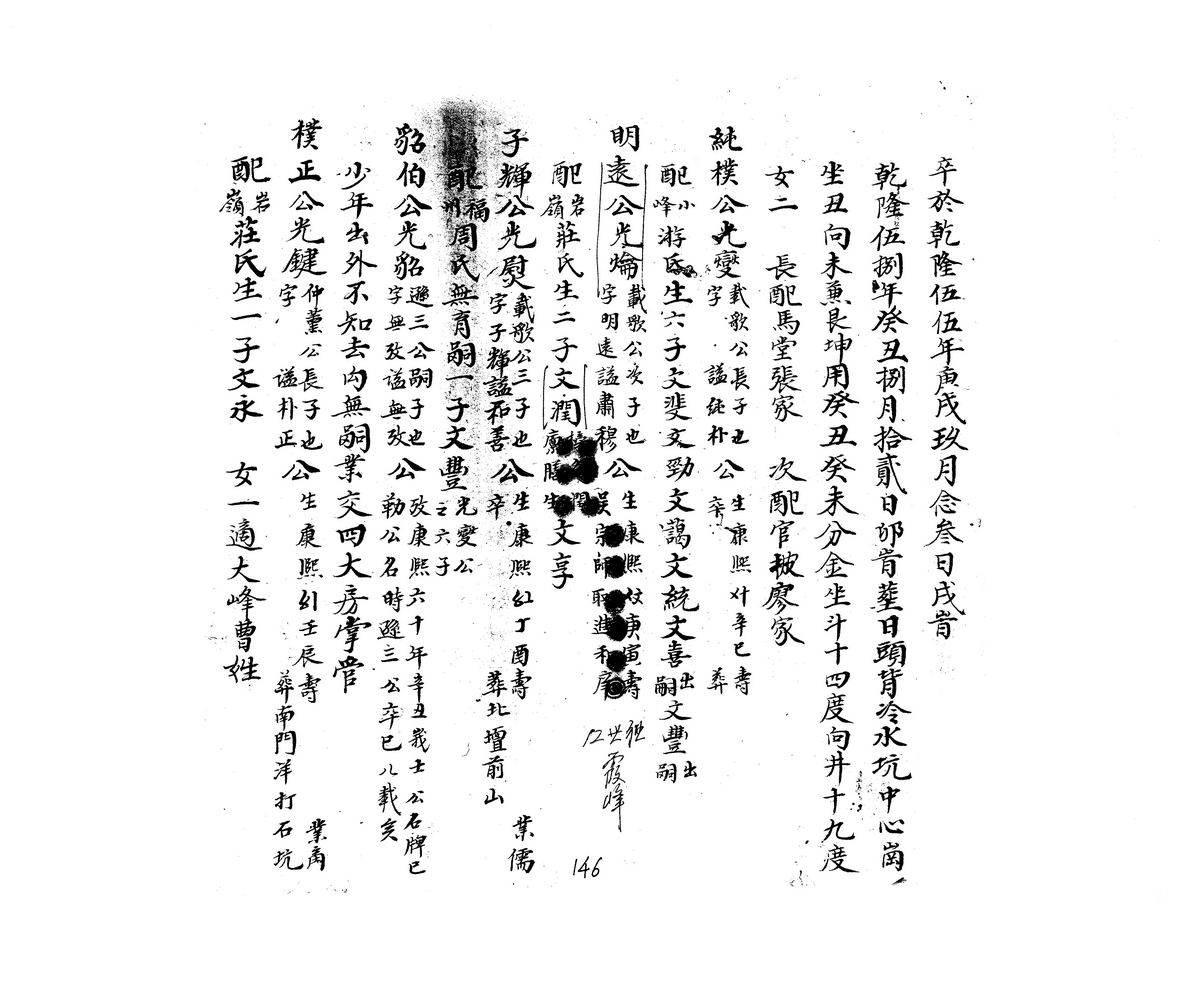 卒於乾隆伍伍年庚戌玖月念叁日戌旹
乾隆伍捌年癸丑捌月拾貳日卯旹塟日頭背冷水坑中心崗
坐丑向未兼艮坤用癸丑癸未分金坐斗十四度向井十九度
女二 長配馬堂張家 次配官披廖家
純樸公光燮載歌公長子也
字 謚純朴公生康熙辛巳壽
卒 葬
配小峰游氏生六子文斐文勁文藹文統文喜出嗣文豐出嗣
明遠公光爚載歌公次子也
字明遠謚肅穆公生康熙庚寅壽
吳宗師取進和庠
霞峰
配岩嶺莊氏生二子文潤文享
子輝公光熨載歌公三子也
字子輝謚和善公生康熙丁酉壽 業儒
卒 葬北壇前山
配福州周氏無育嗣一子文豐光燮公之六子
貂伯公光貂遜三公嗣子也
字無攷謚無攷公攷康熙六十年辛丑我士公石牌已
勒公名時遜三公卒已八載矣
少年出外不知去向無嗣業交四大房掌管
樸正公光鍵仲薰公長子也
字 謚朴正公生康熙壬辰壽 業商
葬南門洋打石坑
配岩嶺莊氏生一子文永 女一適大峰曹姓
146